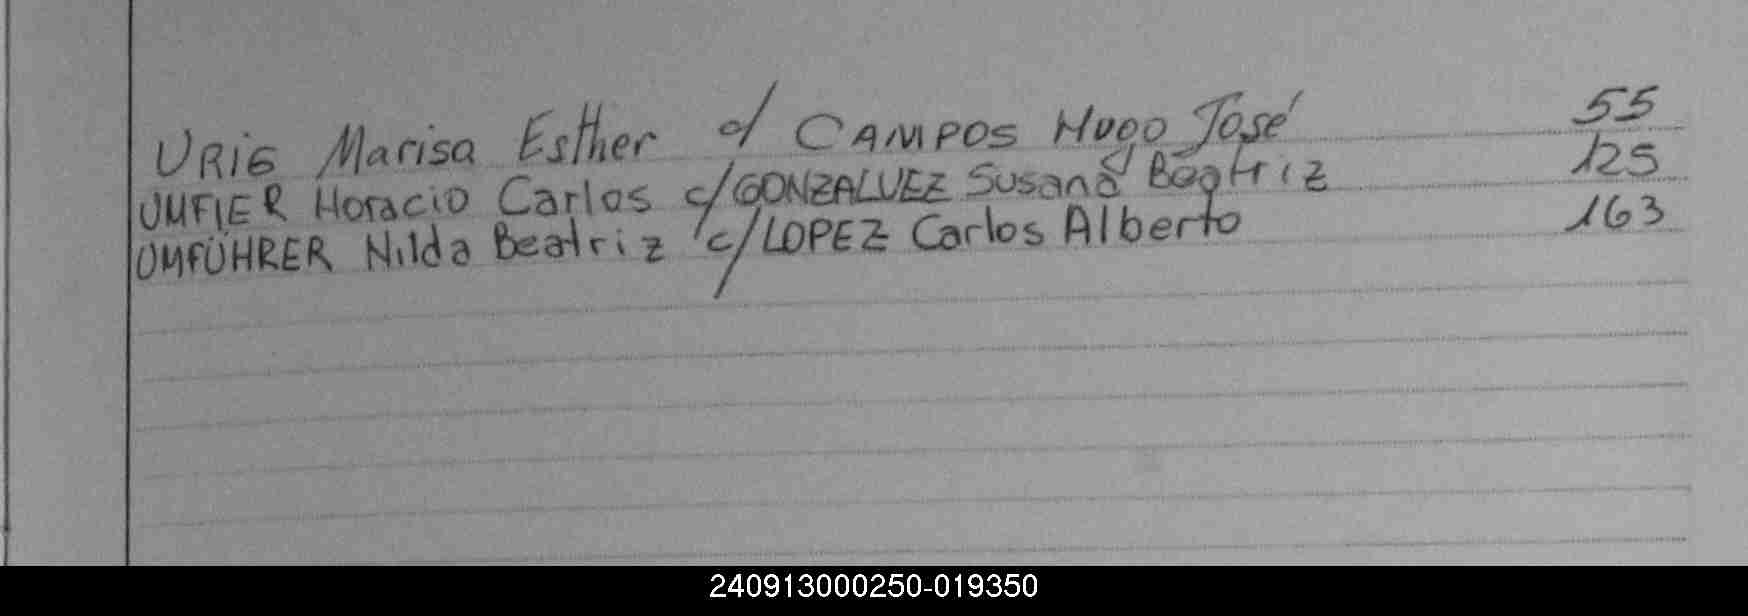 URIG Marisa Esther c/ CAMPOS Hugo José 55
UMFIER Horacio Carlos c/ GONZALVEZ Susana Beatriz 125
UMFÜHRER Nilda Beatriz c/ LOPEZ Carlos Alberto 163
240913000250-019350